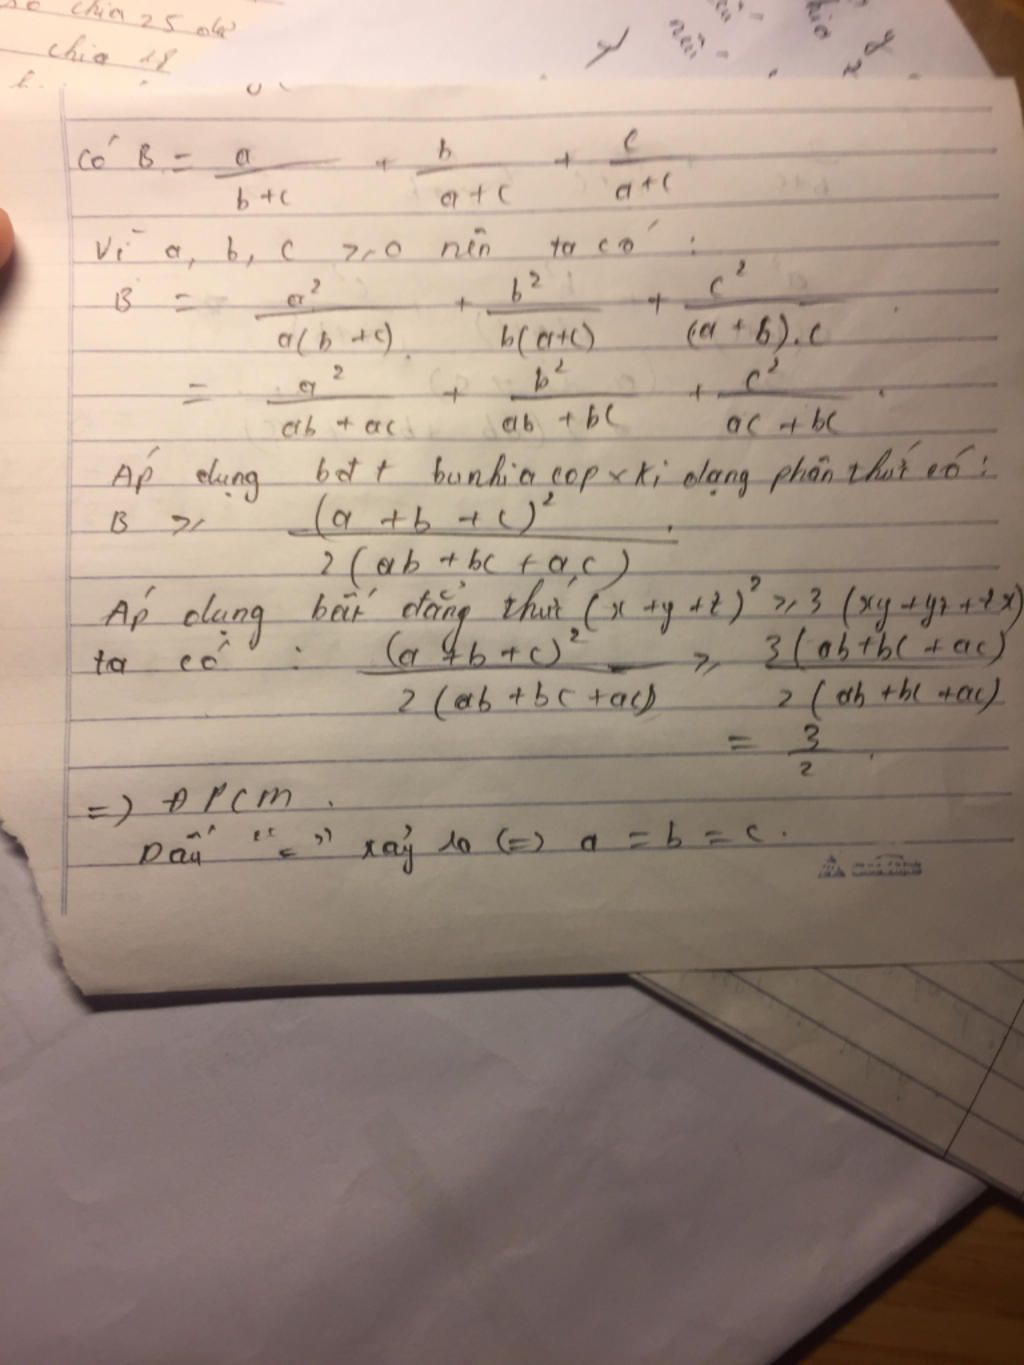 chia 25 dư
chia 18
Có B = a/(b+c) + b/(a+c) + c/(a+c)
Vì a, b, c ≥ 0 nên ta có :
B = a²/(a(b+c)) + b²/(b(a+c)) + c²/((a+b).c)
= a²/(ab+ac) + b²/(ab+bc) + c²/(ac+bc) .
Áp dụng bđt bunhiacopxki dạng phân thức có :
B ≥ (a+b+c)²/(2(ab+bc+ac)) .
Áp dụng bất đẳng thức (x+y+z)² ≥ 3(xy+yz+zx)
ta có : (a+b+c)²/(2(ab+bc+ac)) ≥ 3(ab+bc+ac)/(2(ab+bc+ac))
= 3/2 .
=) ĐPCM .
Dấu "=" xảy ra (=) a = b = c .